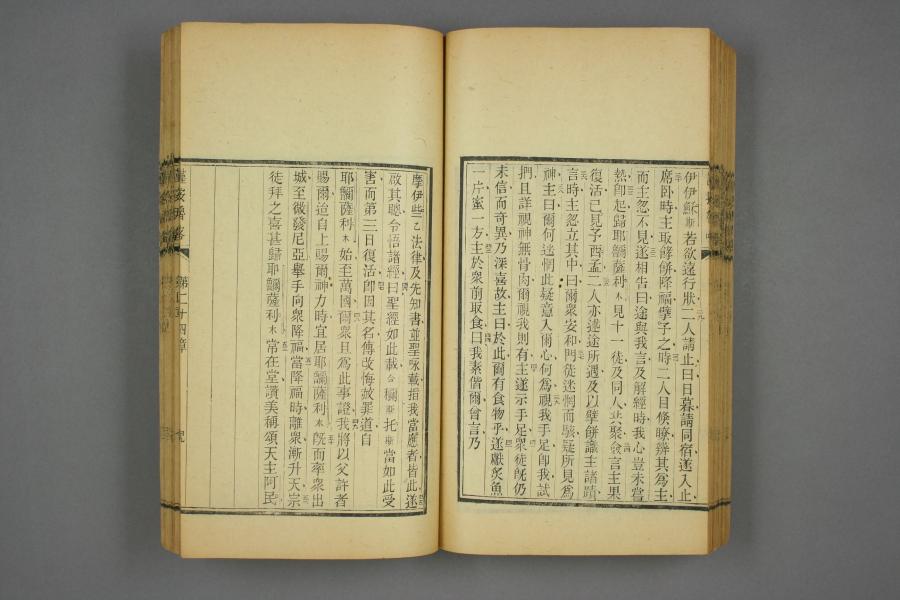 伊伊穌斯若欲遠行狀二人請止曰日暮請同宿遂入止
席卧時主取餅降福擘予之時二人目倏瞭辨其為主
而主忽不見遂相告曰途與我言及解經時我心豈未嘗
熱卽起歸耶𬶍薩利木見十一徒及同人共聚僉言主果
復活已見予西孟二人亦述途所遇及以擘餅識主諸蹟
言時主忽立其中曰爾眾安和門徒迷惘而駭疑所見為
神主曰爾何迷惘此疑意入爾心何為視我手足卽我試
捫且詳視神無骨肉爾視我則有主遂示手足眾徒旣仍
未信而奇異乃深喜故主曰於此爾有食物乎遂獻炙魚
一片蜜一方主於眾前取食曰我素偕爾曾言乃
摩伊些乙法律及先知書並聖咏載指我當應者皆此遂
啟其聰令悟諸經曰聖經如此載合欄斯托斯當如此受
害而第三日復活卽因其名傳改悔赦罪道自
耶𬶍薩利木始至萬國爾眾且為此事證我將以父許者
賜爾迨自上賜爾神力時宜居耶𬶍薩利木旣而率眾出
城至微發尼亞舉手向眾降福當降福時離眾漸升天宗
徒拜之喜甚歸耶𬶍薩利木常在堂讚美稱頌天主阿民
第二十四章